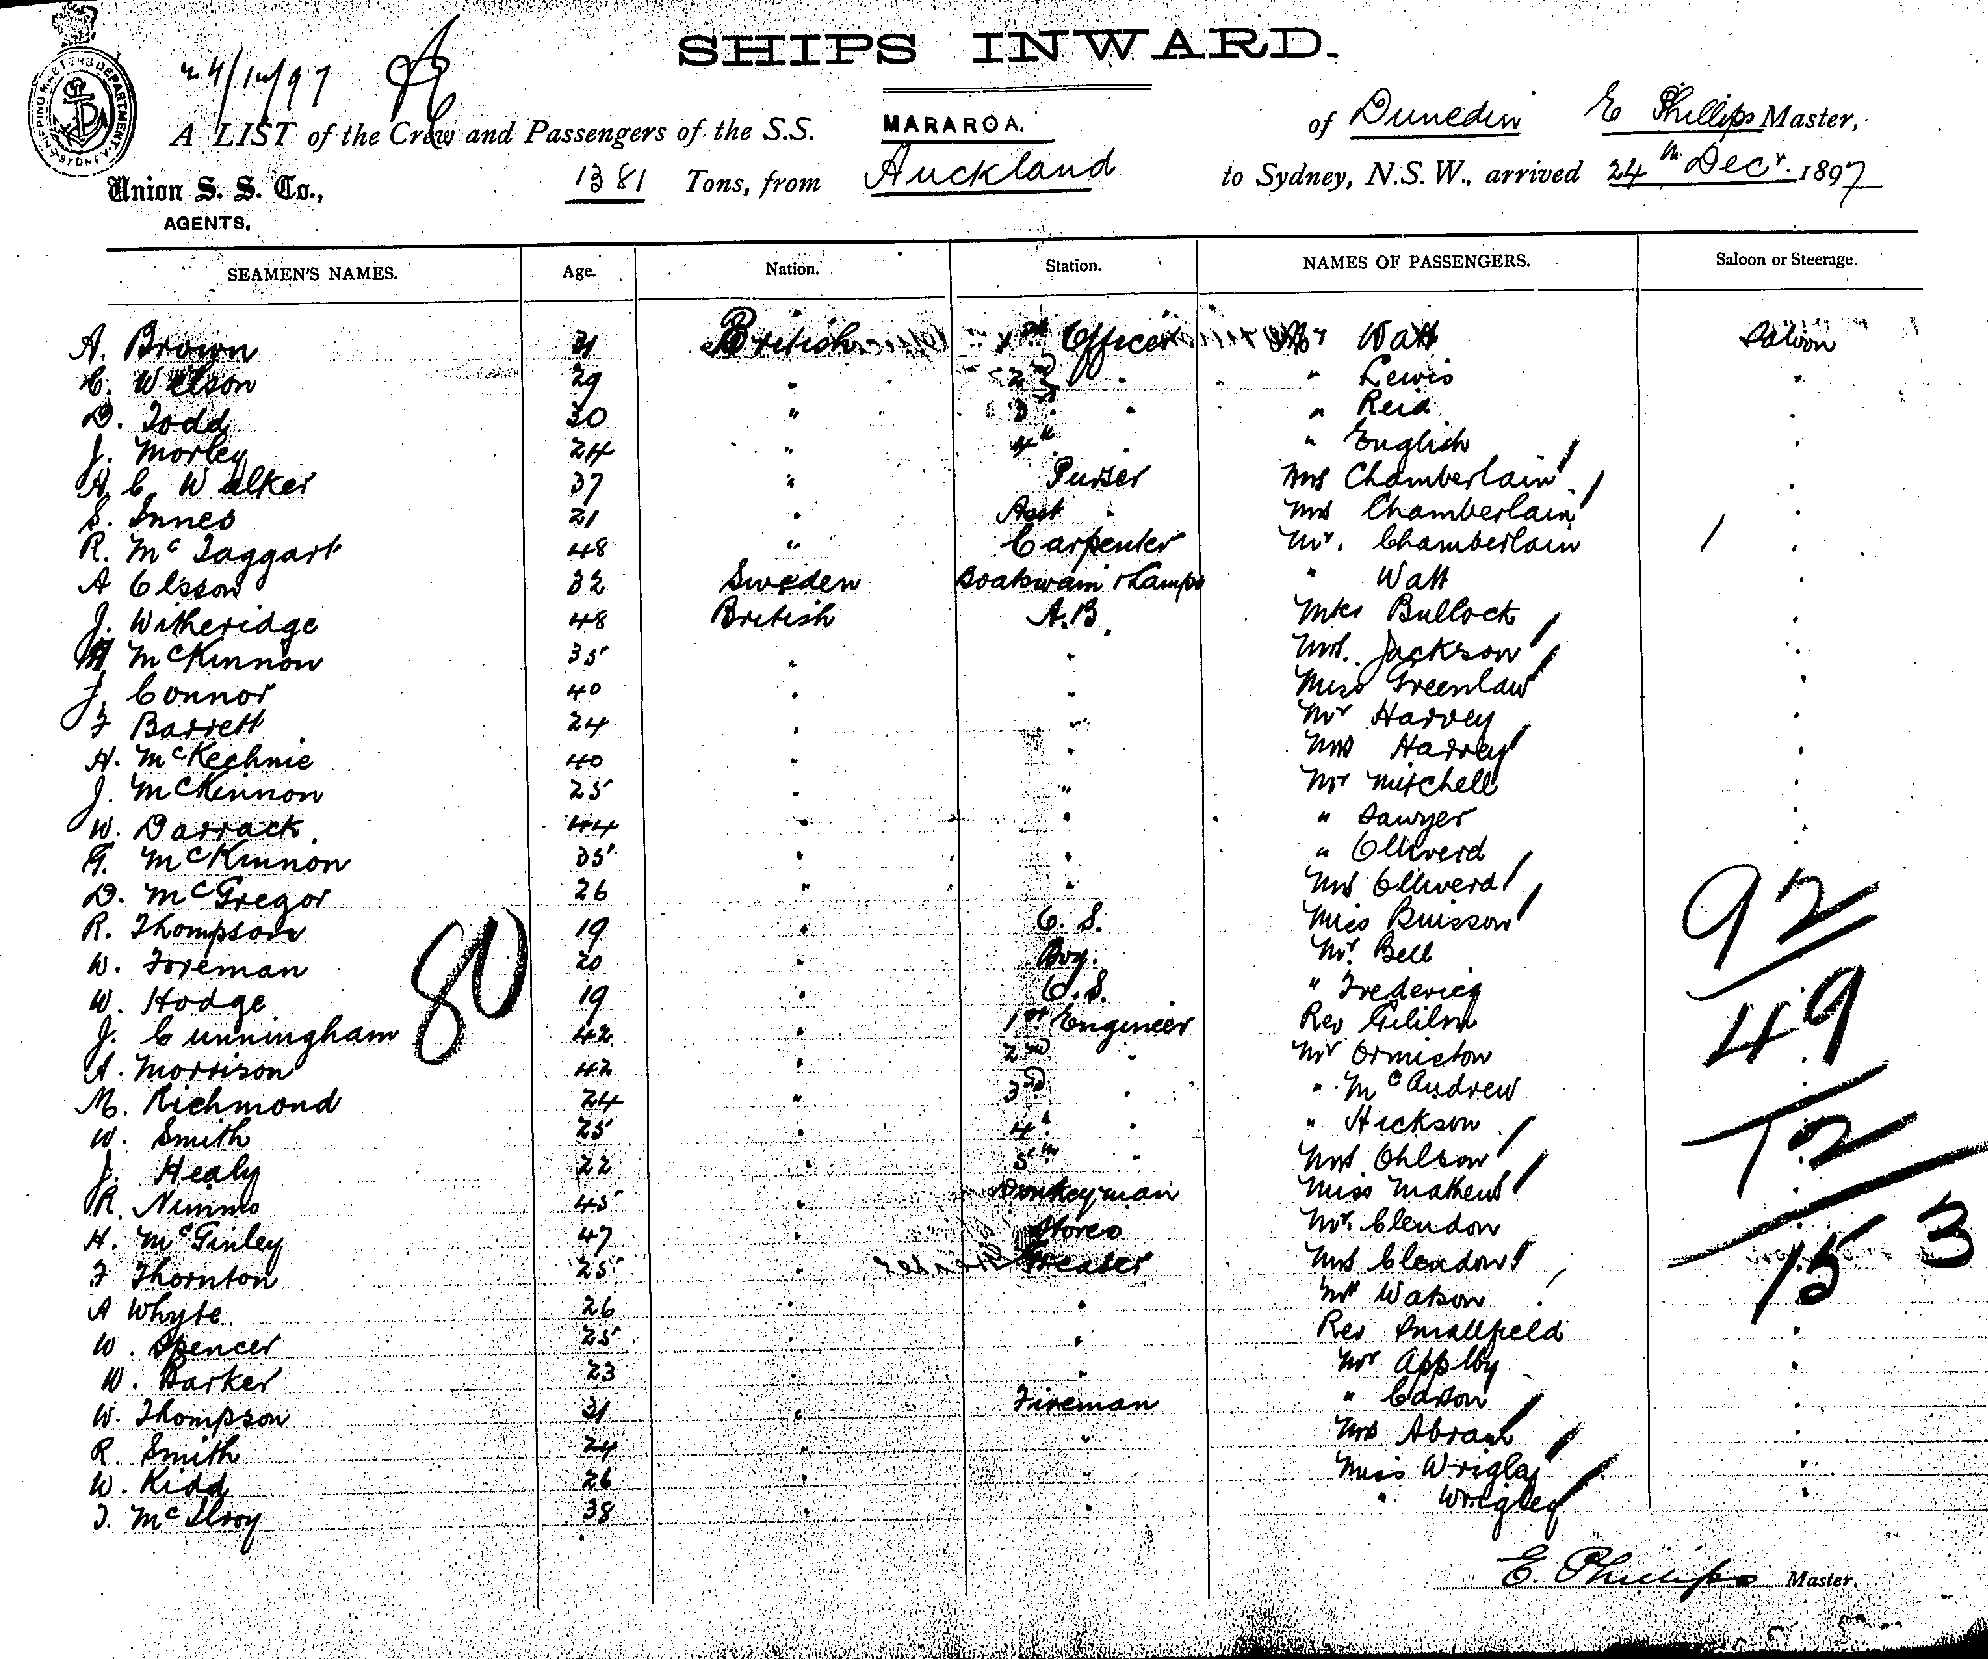 SHIPS INWARD.
24/12/97
A LIST of the Crew and Passengers of the S.S. MARAROA. of Dunedin E Phillips Master,
Union S. S. Co., 1381 Tons, from Auckland to Sydney, N.S.W., arrived 24th Decr. 1897
AGENTS,
SEAMEN'S NAMES. Age. Nation. Station. NAMES OF PASSENGERS. Saloon or Steerage.
A. Brown 31 British 1st Officer Mr Watt Saloon
C. Wilson 29 " 2nd " " Lewis "
D. Todd 30 " 3rd " " Reid "
J. Morley 24 " 4th " " English "
A C Walker 37 " Purser Mrs Chamberlain "
S. Innes 21 " Asst " Mrs Chamberlain "
R. McTaggart 48 " Carpenter Mr. Chamberlain "
A Olsson 32 Sweden Boatswain & Lamps " Watt "
J. Witheridge 48 British A.B. Mrs Bullock "
McKinnon 35 " " Mrs. Jackson "
J. Connor 40 " " Miss Greenlaw "
F Barrett 24 " " Mr Harvey "
H. McKechnie 40 " " Mrs Harvey "
J. McKinnon 25 " " Mr Mitchell "
W. Darrack. 44 " " " Sawyer "
G. McKinnon 35 " " " Ollivera "
D. McGregor 26 " " Mrs Ollivera
R. Thompson 19 " O. S. Miss Buisson 92
W. Foreman 80 20 " Boy. Mr. Bell
W. Hodge 19 " O.S. " Frederick 49
J. Cunningham 42 " 1st Engineer Rev
A. Morrison 42 " 2nd " Mr Ormiston
M. Richmond 24 " 3rd " " McAndrew
W. Smith 25 " 4th " " Hickson 12
J. Healy 22 " 5th " Mrs. Ohlson
R. Nimmo 45 " Donkeyman Miss Mathews
H. McGinley 47 " Stores Mr. Clendon
F Thornton 25 " Greaser Mrs Clendon 153
A Whyte 26 " " Watson
W. Spencer 25 " " Rev Smallfield "
W. Barker 23 " " Mr Appleby "
W. Thompson 31 " Fireman " "
R. Smith 24 " " Mrs Abram "
W. Kidd 26 " " Miss Wrigley "
T. McIlroy 38 " " " Wrigley "
E. Phillips Master.